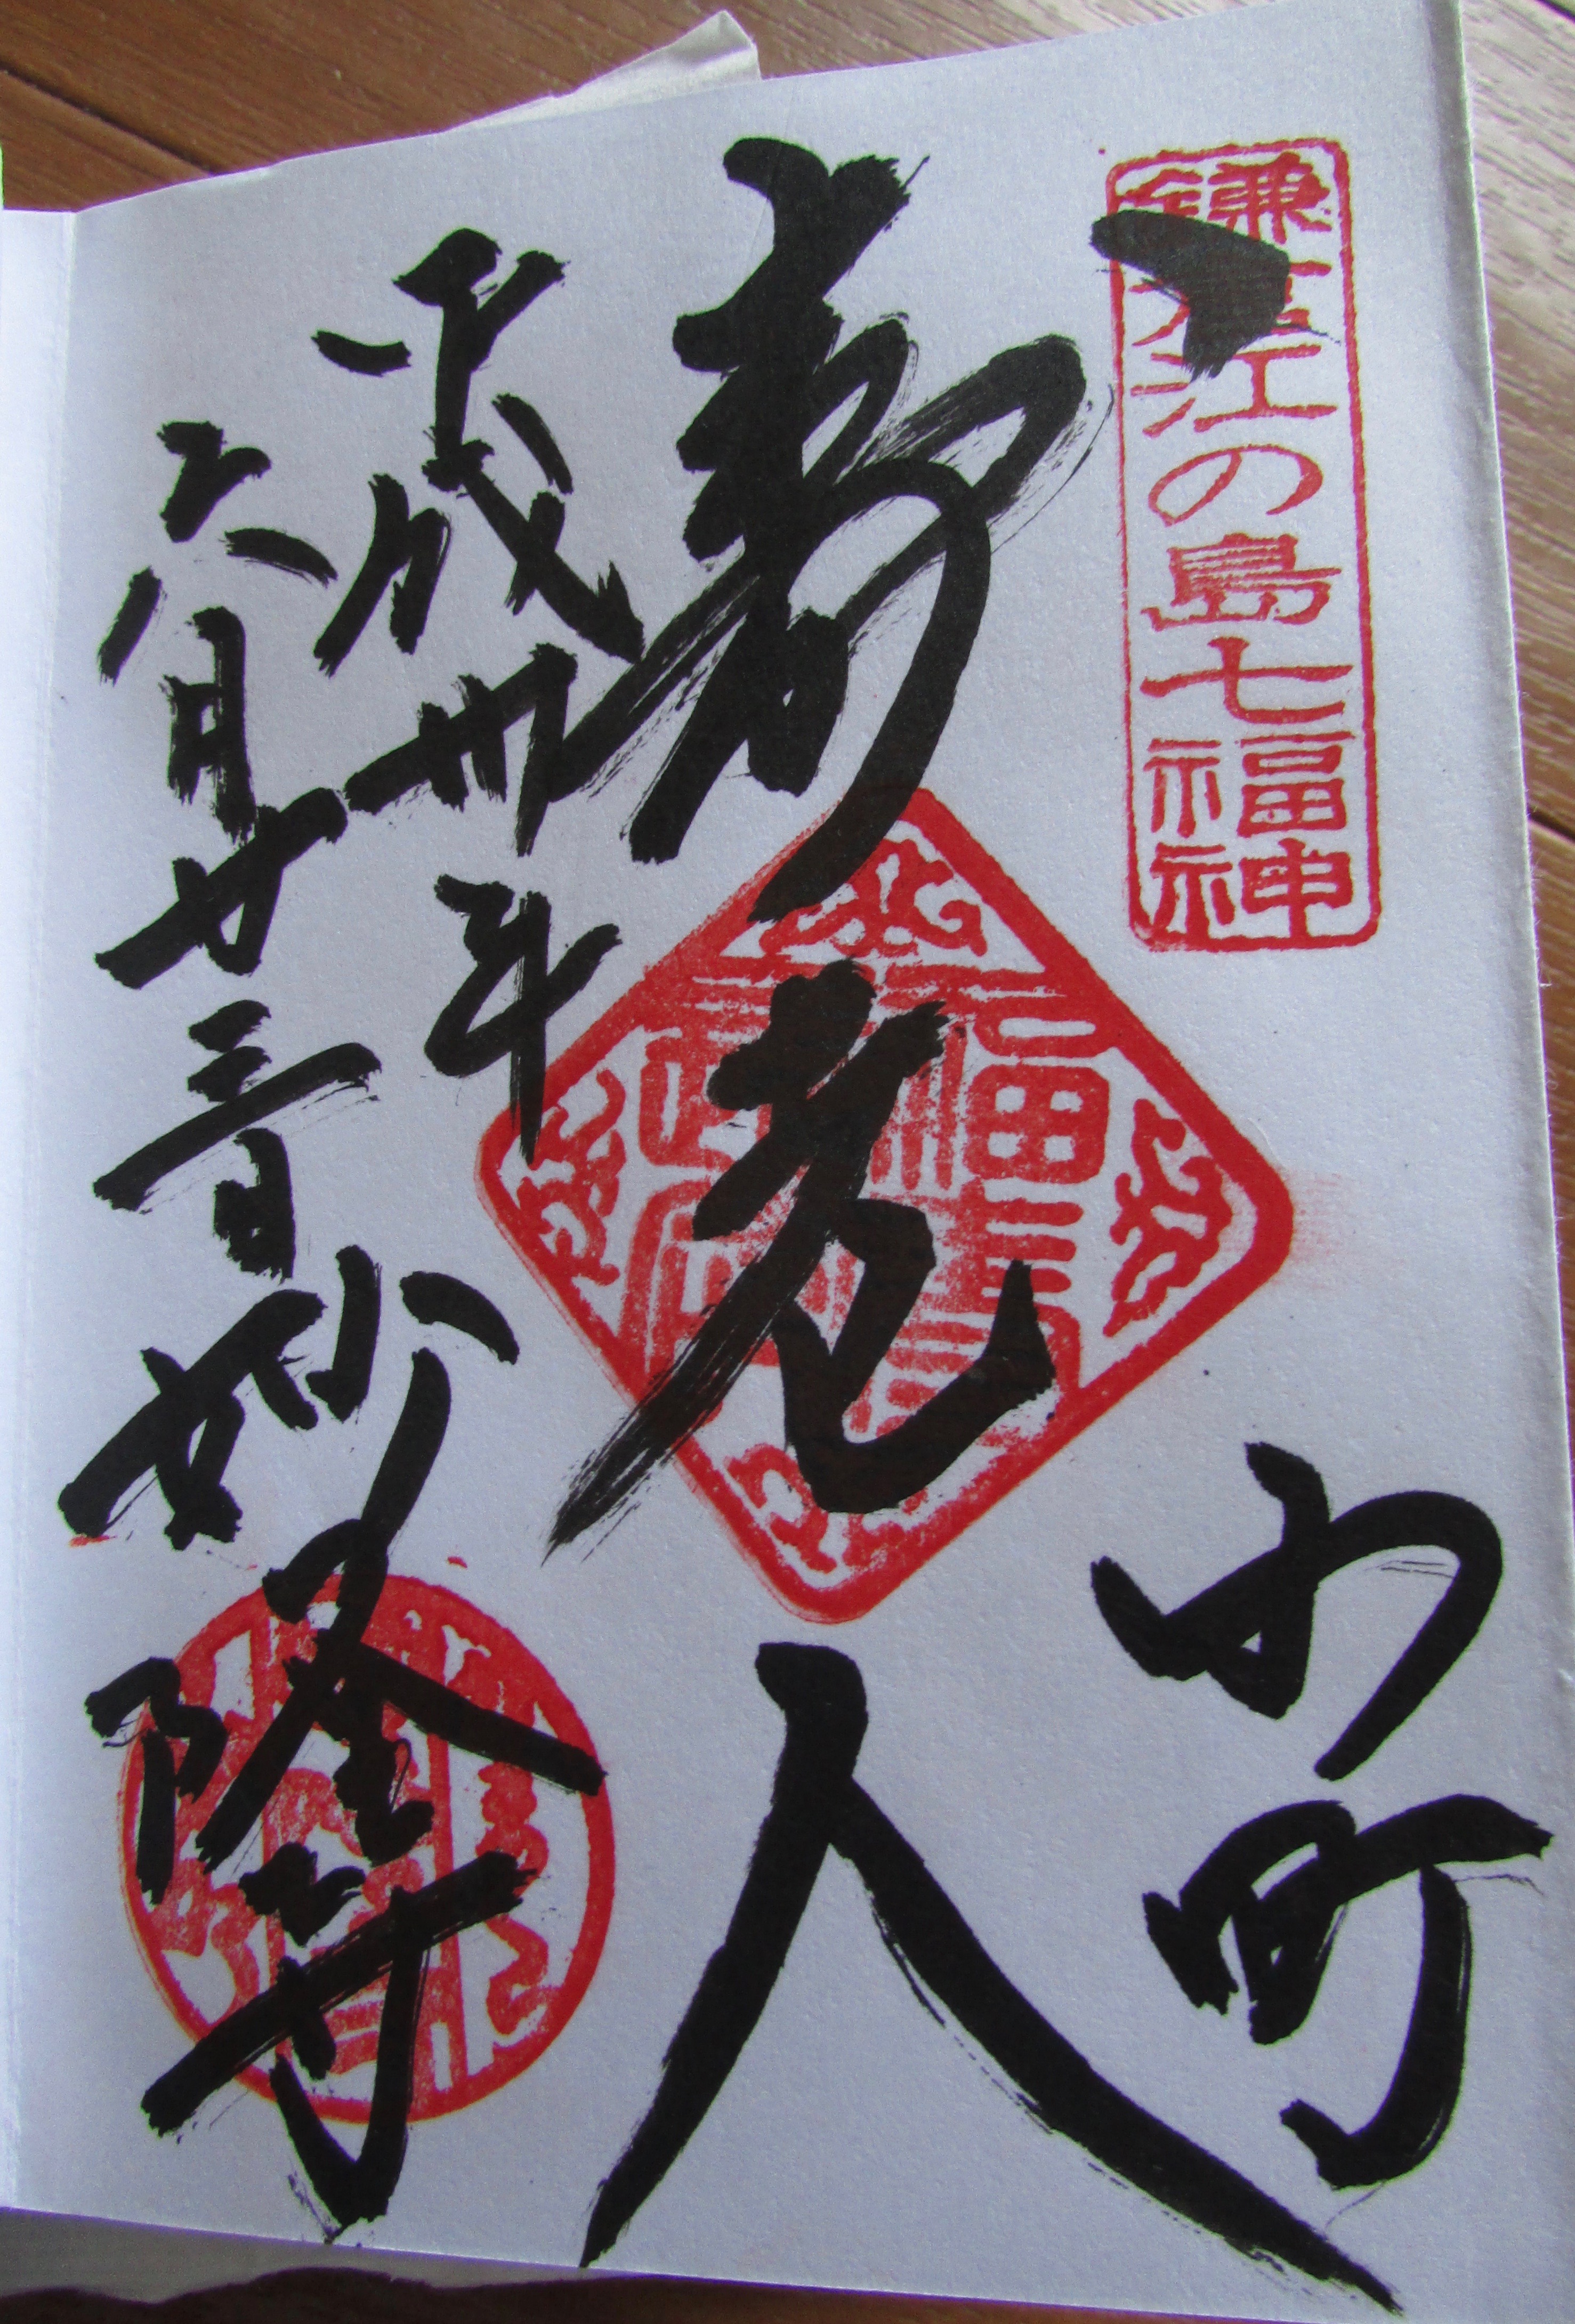 鎌倉江の島七福神
小町
寿老人
平成卅年
六月廿三日
妙隆寺